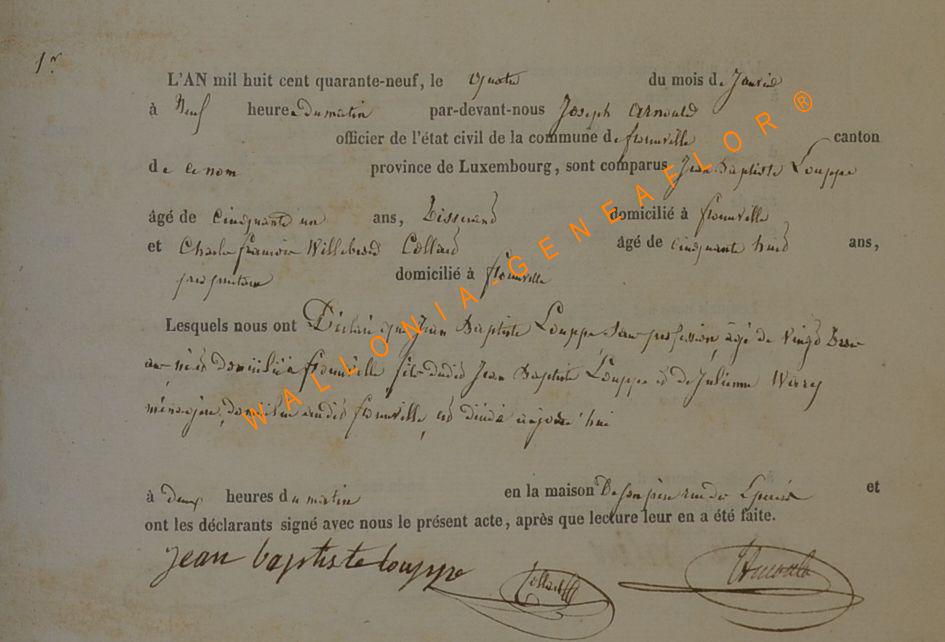 1r
L'AN mil huit cent quarante-neuf, le quatre du mois de Janvier
à Neuf heures du matin par-devant-nous Joseph Arnould
officier de l'état civil de la commune de florenville canton
de ce nom province de Luxembourg, sont comparus Jean Baptiste Louppe
âgé de cinquante un ans, Tisserand domicilié à florenville
et Charles françois Willebrord Collard âgé de cinquante huit ans,
propriétaire domicilié à florenville
Lesquels nous ont Déclaré que Jean Baptiste Louppe sans profession, âgé de vingt deux
ans né et domicilié à florenville fils dudit Jean Baptiste Louppe et de Julienne
ménagère, domiciliée audit florenville, est décédé aujourd'hui
à deux heures du matin en la maison De son père rue des et
ont les déclarants signé avec nous le présent acte, après que lecture leur en a été faite.
jean baptiste louppe Collard Arnould
WALLONIA-GENEAFLOR ®